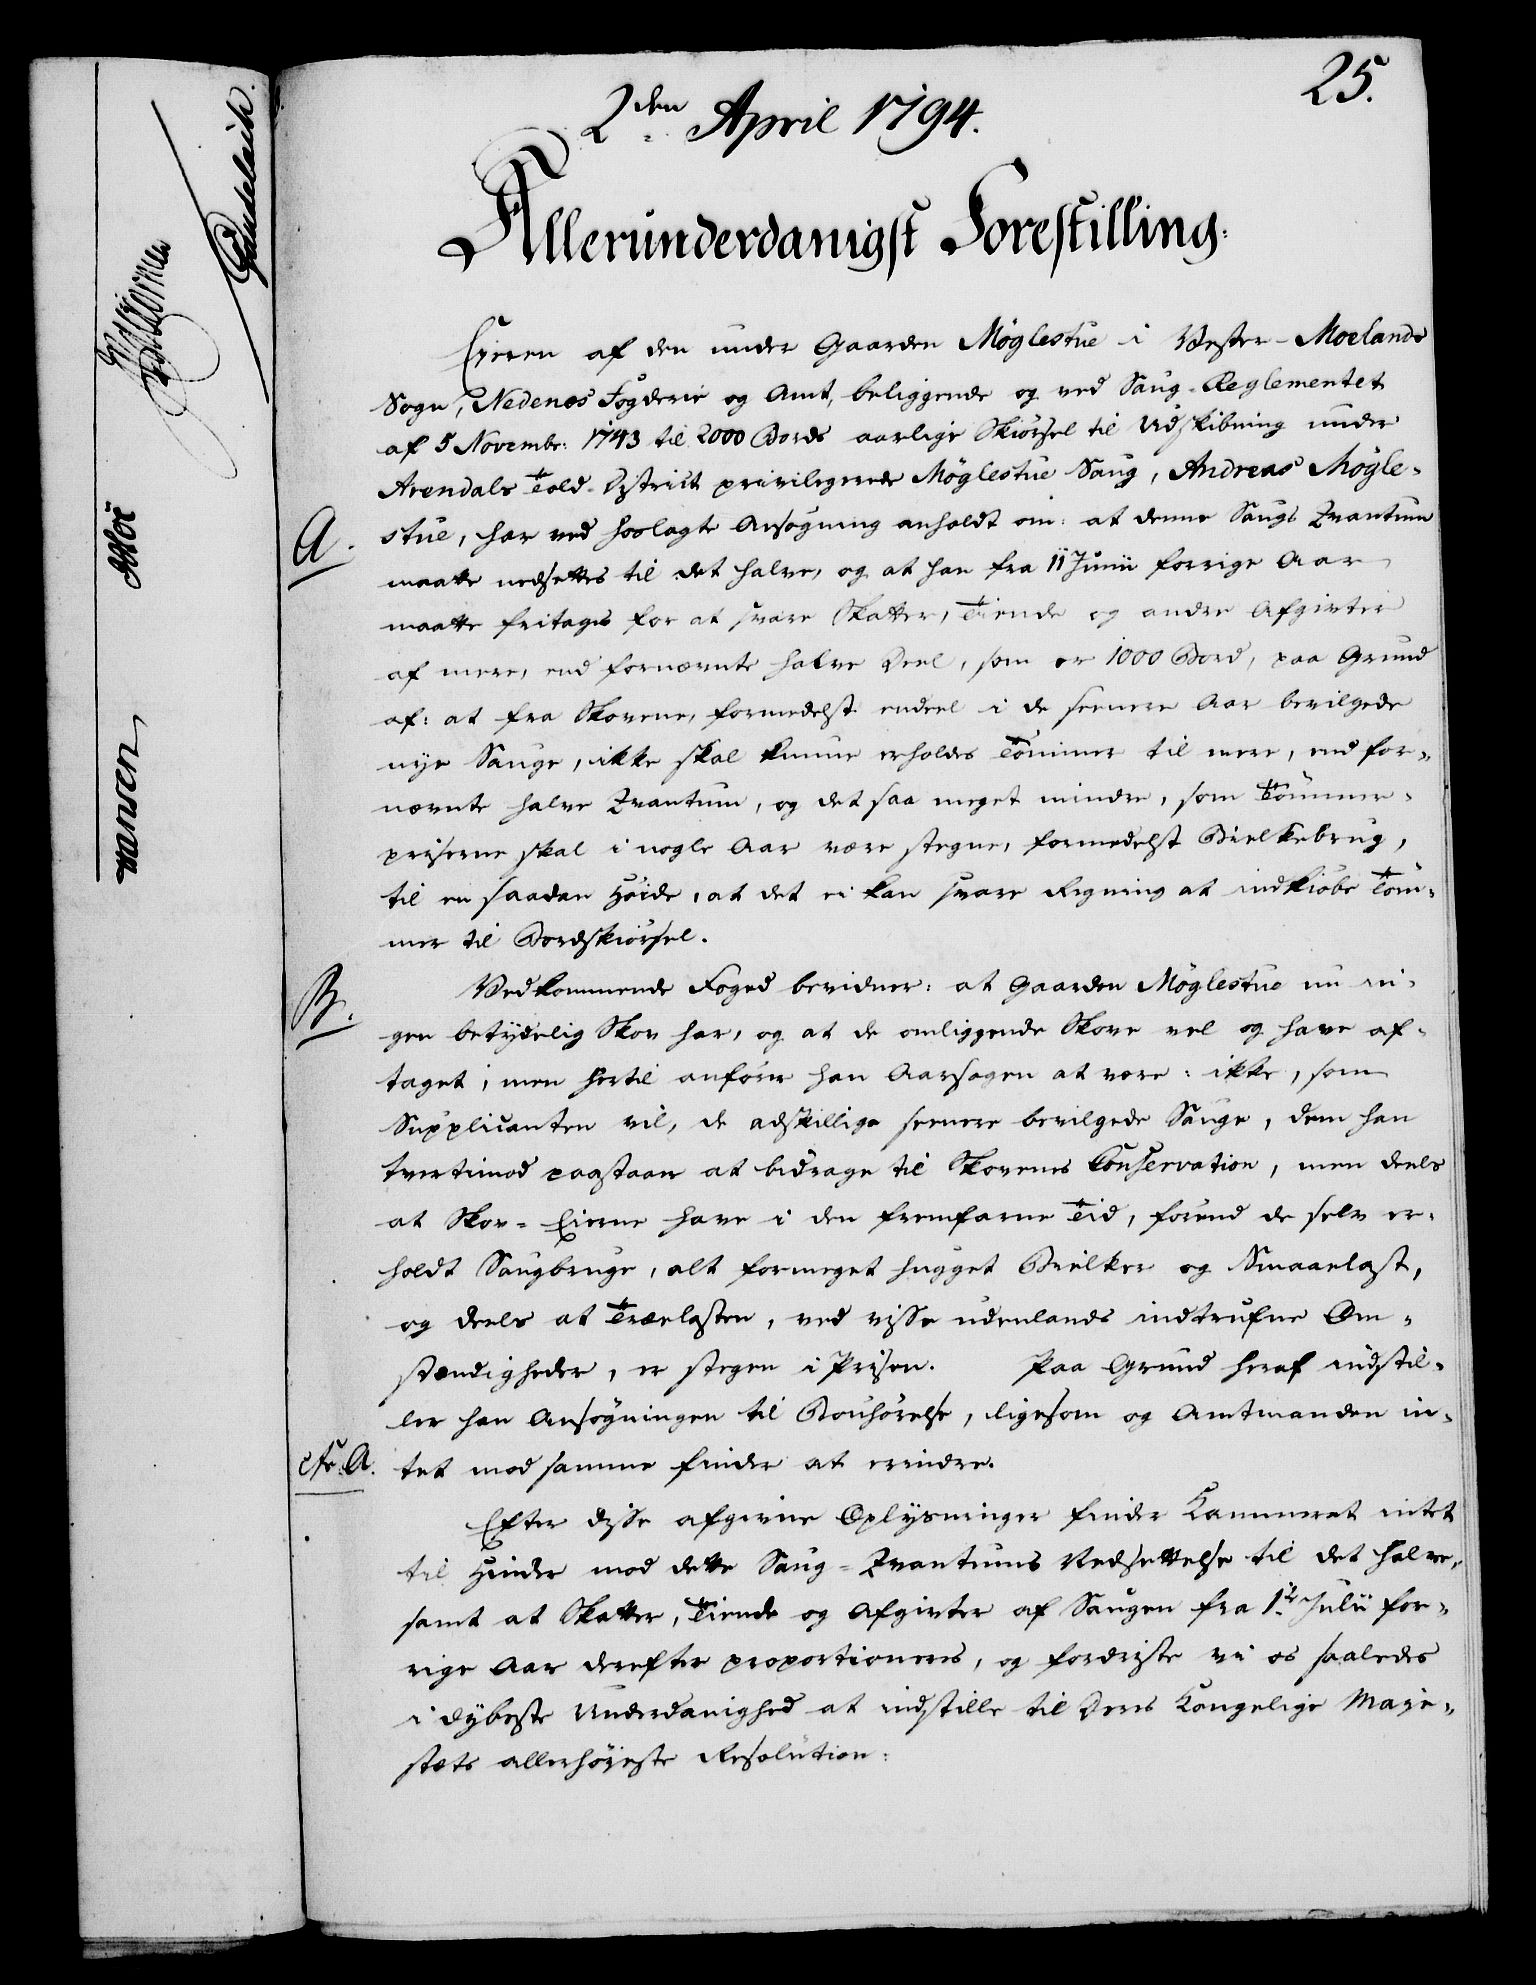 25.
2den April 1794.
Allerunderdanigst Forestilling:
Eieren af den under Gaarden Möglestue i Vester-Moelands
Sogn, Nedenes Fogderie og Amt, beliggende og ved Saug-Reglementet
af 5 Novembr: 1743 til 2000 Bords aarlige Skiörsel til Udskibning under
Arendals Told-Distrikt privilegerede Möglestue Saug, Andreas Mögle-
A.
stue, har ved hoslagte Ansögning anholdt om: at denne Saugs Qvantum
maatte nedsettes til det halve, og at han fra 11 Junii forrige Aar
maatte fritages for at svare Skatter, Tiende og andre Afgivter
af mere, end fornævnte halve Deel, som er 1000 Bord, paa Grund
af: at fra Skovene, formedelst endeel i de seenere Aar bevilgede
nye Sauge, ikke skal kunne erholdes Tömmer til mere, end for-
nævnte halve Qvantum, og det saa meget mindre, som Tömmer-
priserne skal i nogle Aar være stegne, formedelst Bielkebrug,
til en saadan Höide, at det ei kan svare Regning at indkiöbe Töm-
mer til Bordskiörsel.
B.
Vedkommende Foged bevidner: at Gaarden Möglestue nu in-
gen betydelig Skov har, og at de omliggende Skove vel og have af-
taget; men hertil anförer han Aarsagen at være: ikke, som
Supplicanten vil, de adskillige seenere bevilgede Sauge, dem han
tvertimod paastaar at bidrage til Skovenes Conservation, men deels
at Skov-Eierne have i den fremfarne Tid, forend de selv er-
holdt Saugbruge, alt formeget hugget Bielker og Smaaelast,
og deels at Trælasten, ved visse udenlands indtrufne Om-
stændigheder, er stegen i Prisen. Paa Grund heraf indstil-
ler han Ansögningen til Bönhörelse, ligesom og Amtmanden in-
cfr. A.
tet mod samme finder at erindre.
Efter disse afgivne Oplysninger finder Kammeret intet
til Hinder mod dette Saug-Qvantums Nedsettelse til det halve,
samt at Skatter, Tiende og Afgivter af Saugen fra 1te Julii for-
rige Aar derefter proportioneres, og fordriste vi os saaledes
i dybeste Underdanighed at indstille til Deres Kongelige Maje-
stæts allerhöjeste Resolution: